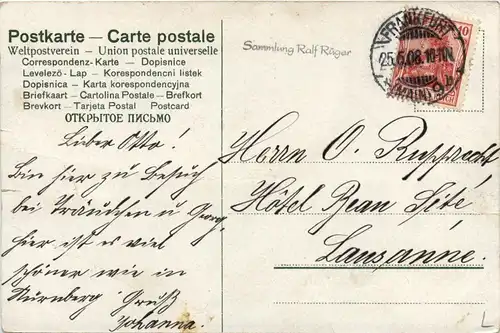 Postkarte — Carte postale
Weltpostverein — Union postale universelle
Correspondenz-Karte — Dopisnice
Levelező-Lap — Korespondencni listek
Dopisnica — Karta korespondencyjna
Briefkaart — Cartolina Postale — Brefkort
Brevkort — Tarjeta Postal   Postcard
ОТКРЫТОЕ ПИСЬМО
Sammlung Ralf Räger
FRANKFURT
25.6.08. 10-11N.
(MAIN) 9
10
Lieber Otto!
Bin hier zu Besuch
bei Träudchen u Georg,
hier ist es viel
schöner wie in
Nürnberg   Gruß
Johanna.
Herrn O. Rupprecht
Hôtel Beau Sité,
Lausanne.
L